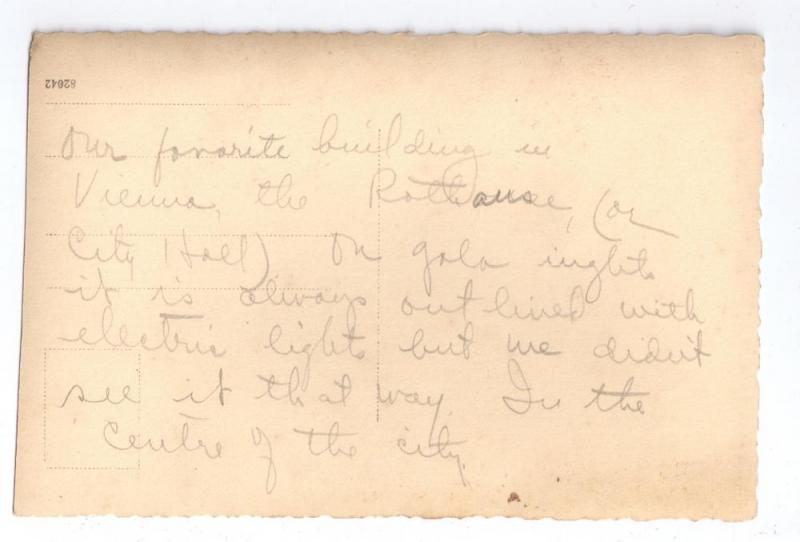 82042
Our favorite building in
Vienna, the Rathause, (or
City Hall) On gala nights
it is always outlined with
electric lights but we didn't
see it that way. In the
centre of the city.